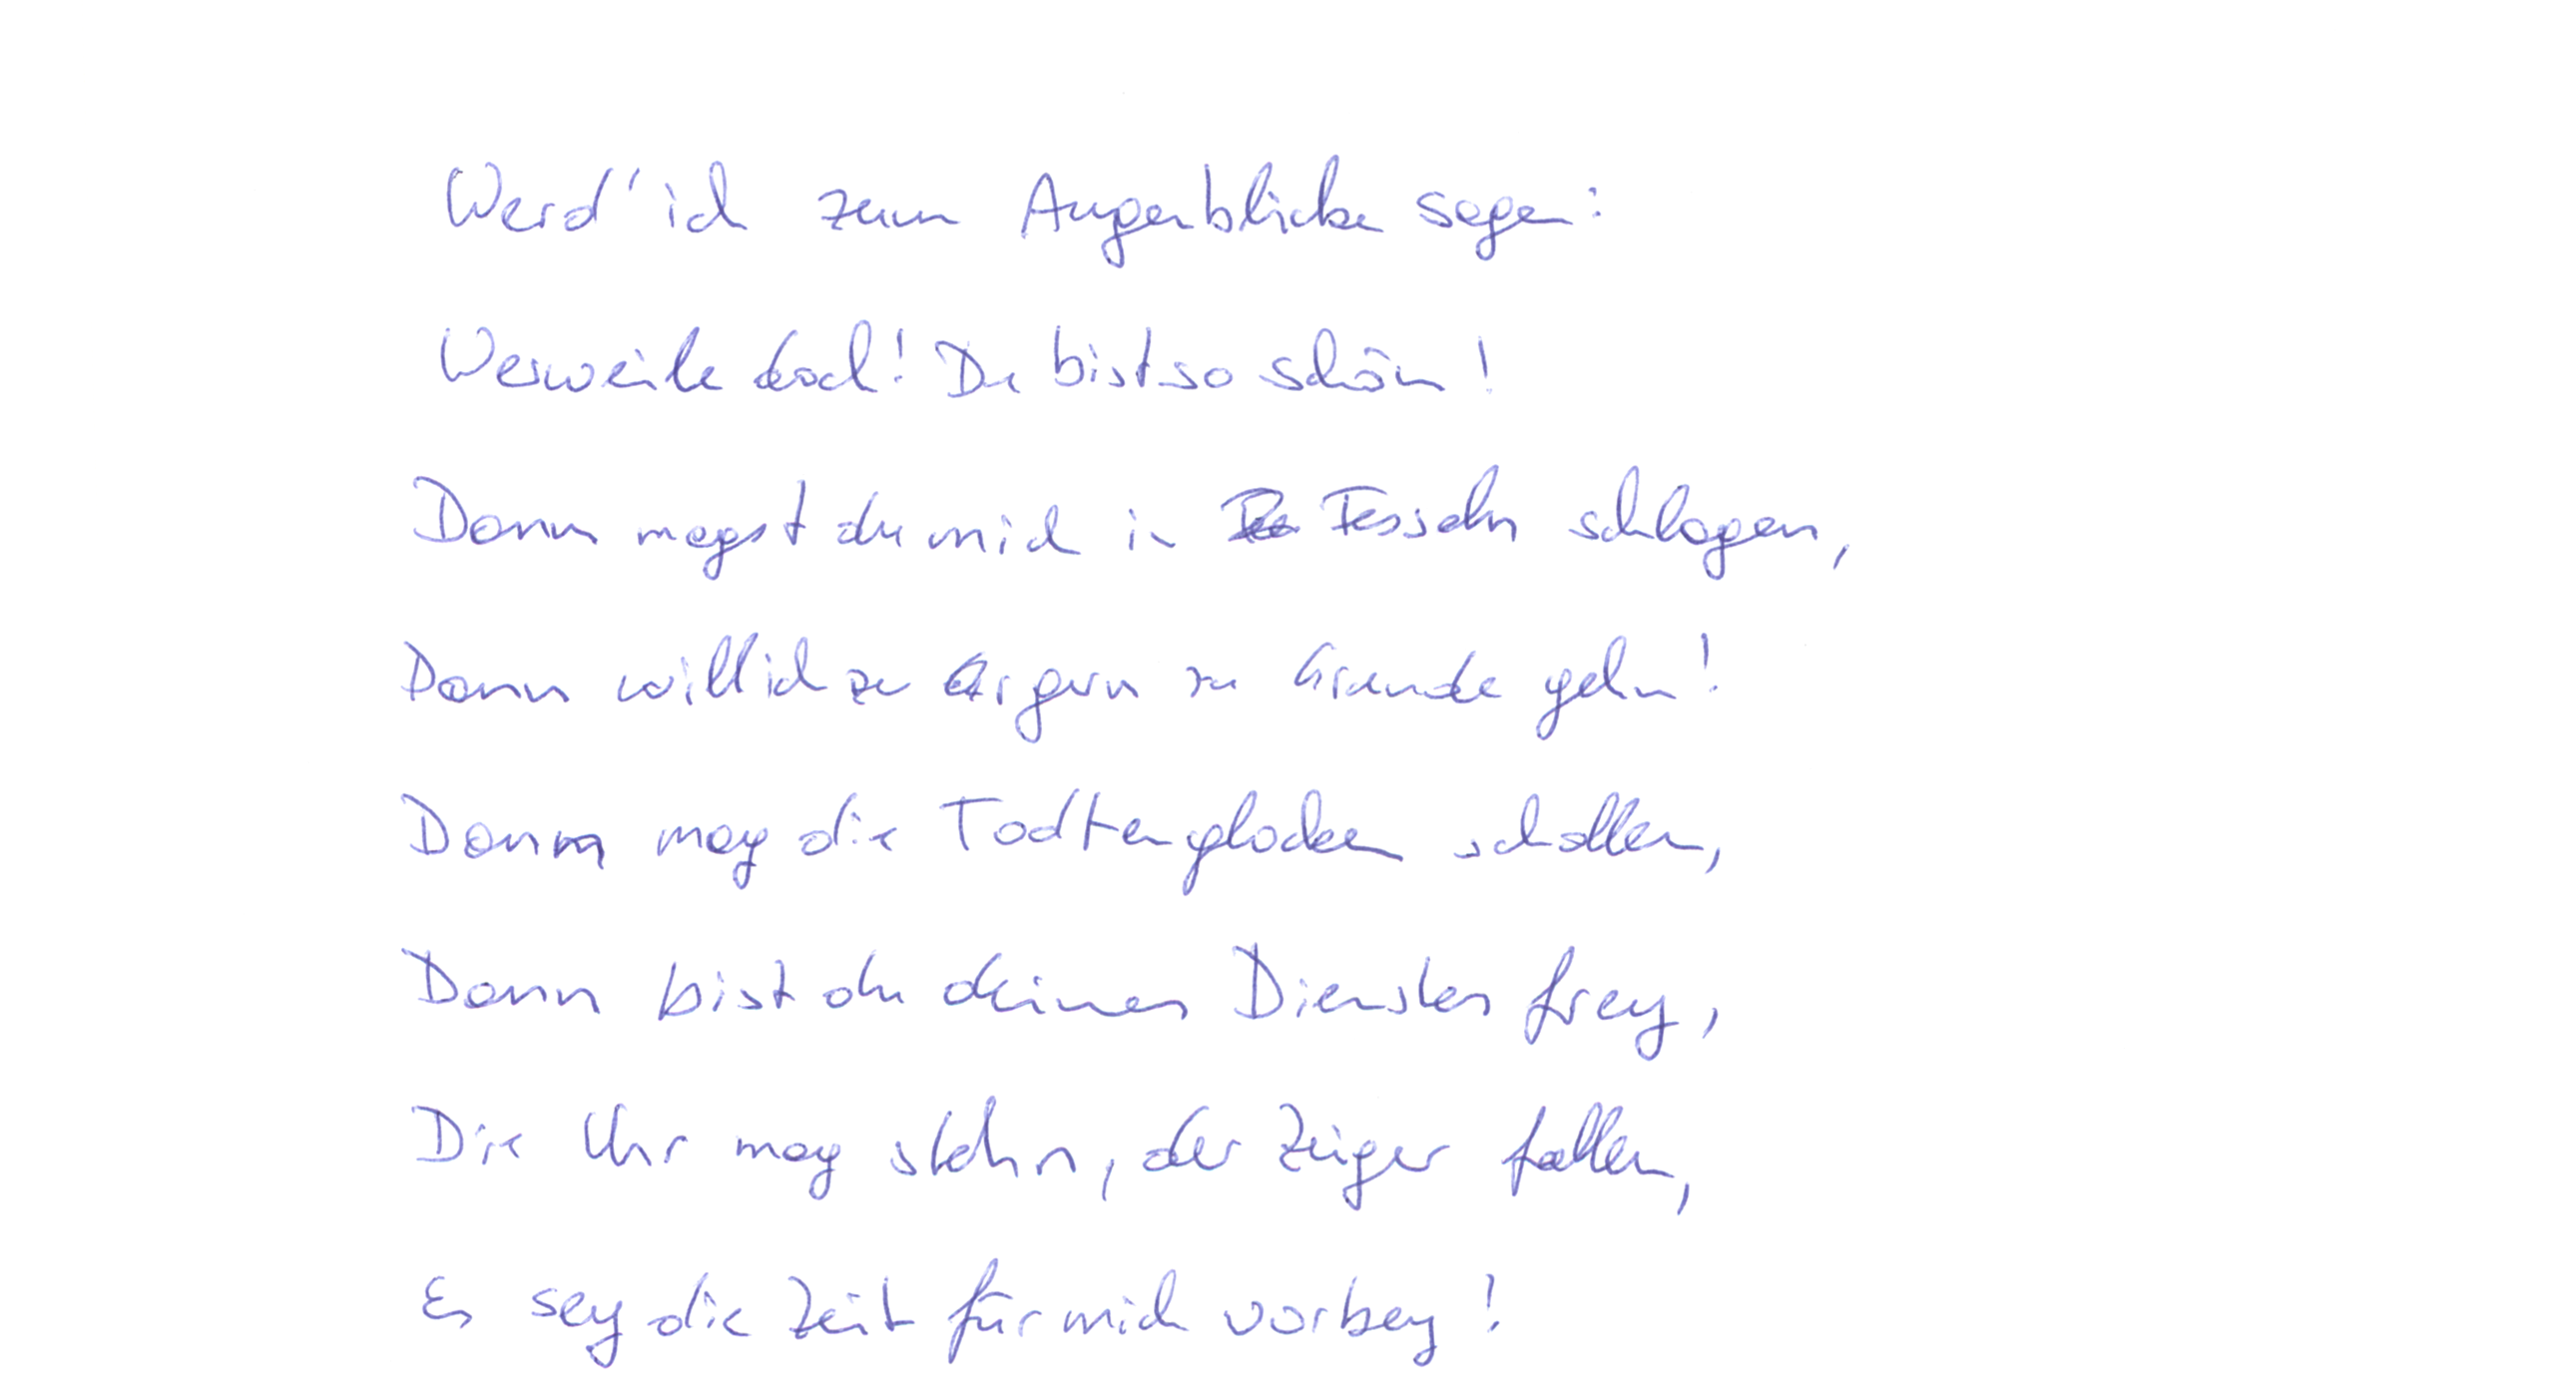 Werd' ich zum Augenblicke sagen:
Verweile doch! Du bist so schön!
Dann magst du mich in Fesseln schlagen,
Dann will ich zu gern zu Grunde gehn!
Dann mag die Todtenglocken schallen,
Dann bist du deines Dienstes frey,
Die Uhr mag stehn, der Zeiger fallen,
Es sey die Zeit für mich vorbey!